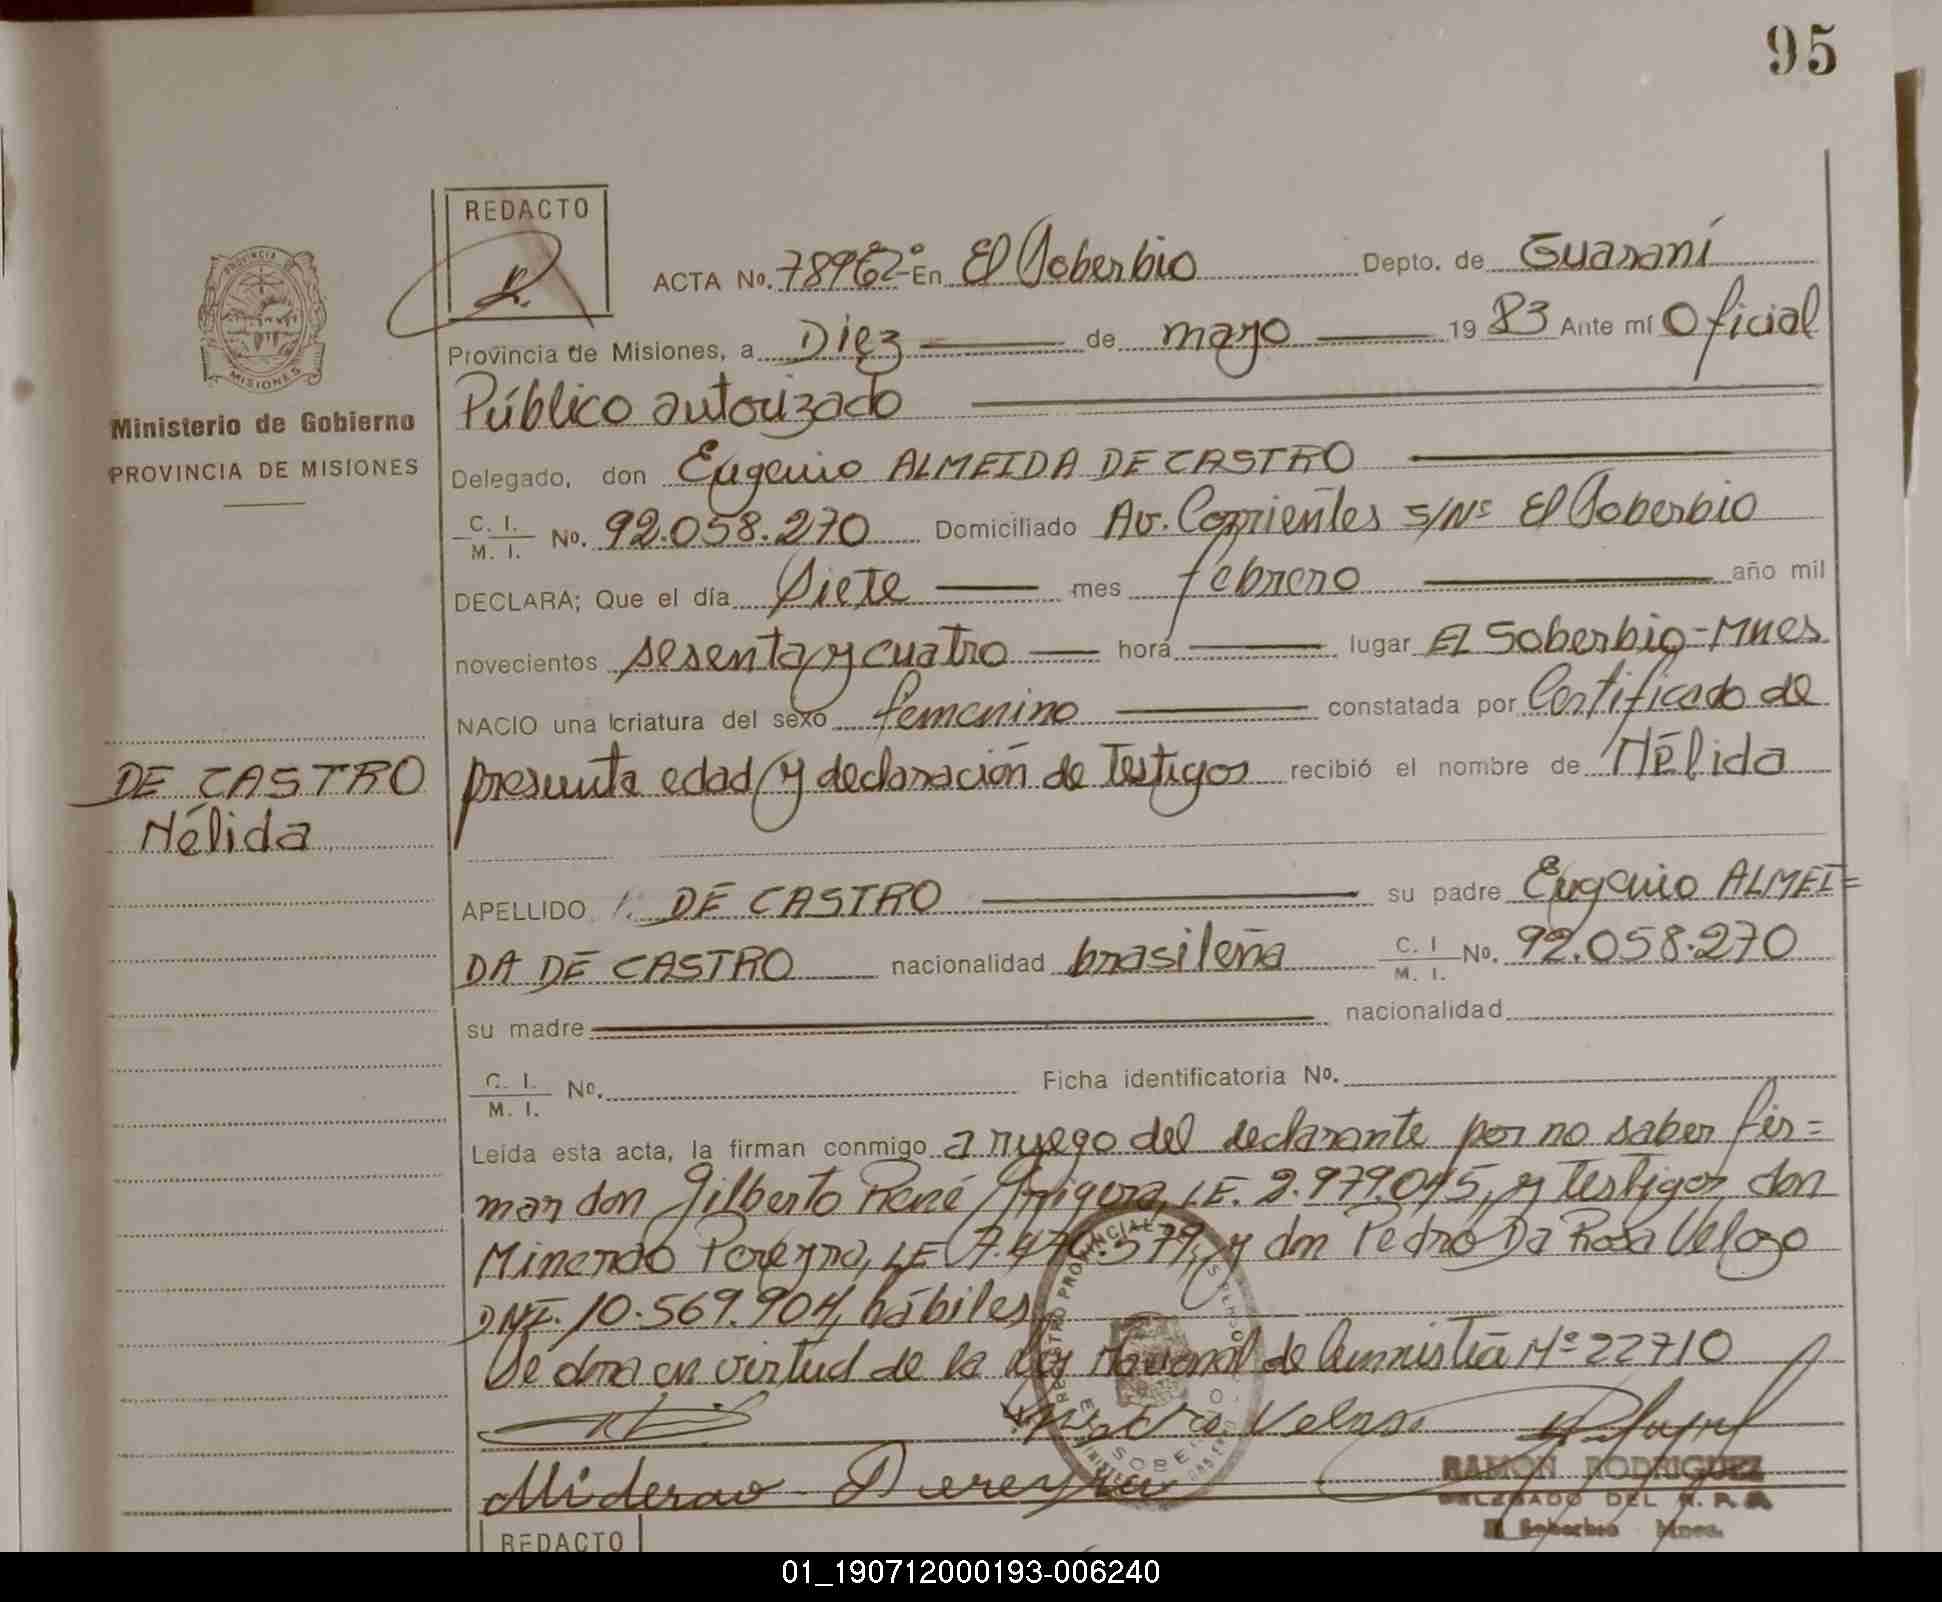 95
REDACTO
ACTA No. 78962º En El Soberbio Depto. de Guaraní
PROVINCIA DE
MISIONES
Provincia de Misiones, a Diez de mayo 19 83 Ante mí Oficial
Público autorizado
Ministerio de Gobierno
PROVINCIA DE MISIONES
Delegado, don Eugenio ALMEIDA DE CASTRO
C. I. / M. I. No. 92.058.270 Domiciliado Av. Corrientes S/Nº El Soberbio
DECLARA; Que el día Siete mes febrero año mil
novecientos sesenta y cuatro hora lugar El Soberbio-Mnes
NACIO una criatura del sexo femenino constatada por Certificado de
presunta edad y declaración de Testigos recibió el nombre de Nélida
DE CASTRO
Nélida
APELLIDO DE CASTRO su padre Eugenio ALMEI=
DA DE CASTRO nacionalidad brasileña C. I / M. I. No. 92.058.270
su madre nacionalidad
C. I. / M. I. No. Ficha identificatoria No.
Leída esta acta, la firman conmigo a ruego del declarante por no saber fir=
mar don Gilberto René LE. 2.979.045, y Testigos don
Minerao Pereyra, LE 7.470.579, y don Pedro Da Rosa Velozo
DNI. 10.569.904, hábiles
Se obra en virtud de la Ley Nacional de Amnistía Nº 22710
Miderao Pereyra
RAMON RODRIGUEZ
DELEGADO DEL R. P. P.
El Soberbio Mnes.
REDACTO
01_190712000193-006240